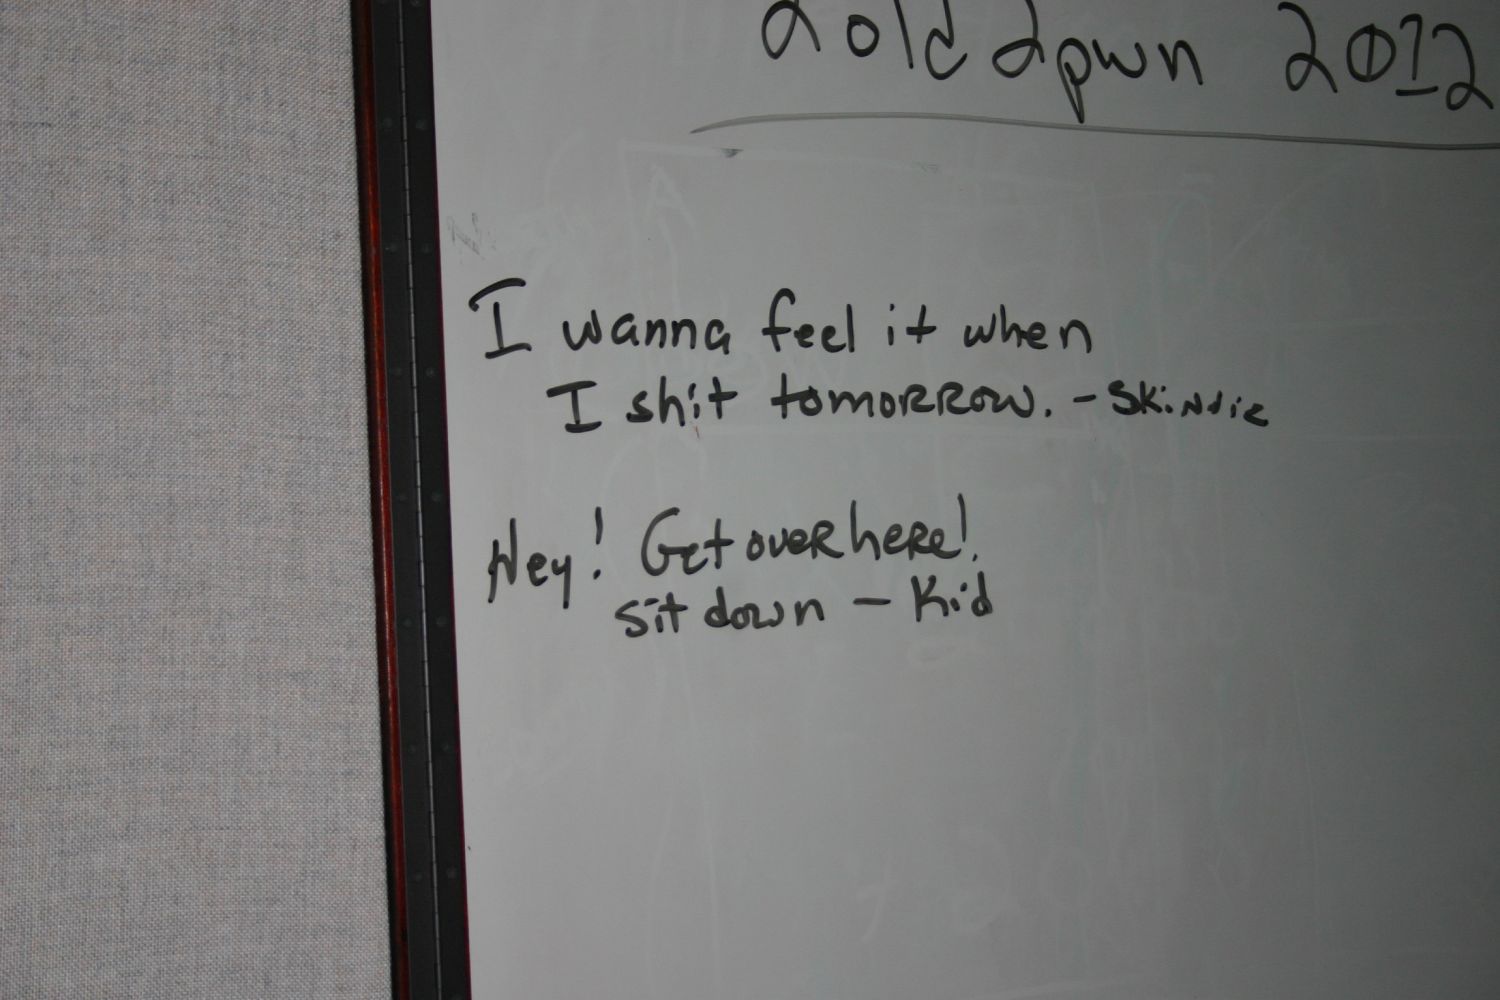 2old2pwn 2012
I wanna feel it when
I shit tomorrow. - Skindie
Hey! Get over here!
sit down - Kid